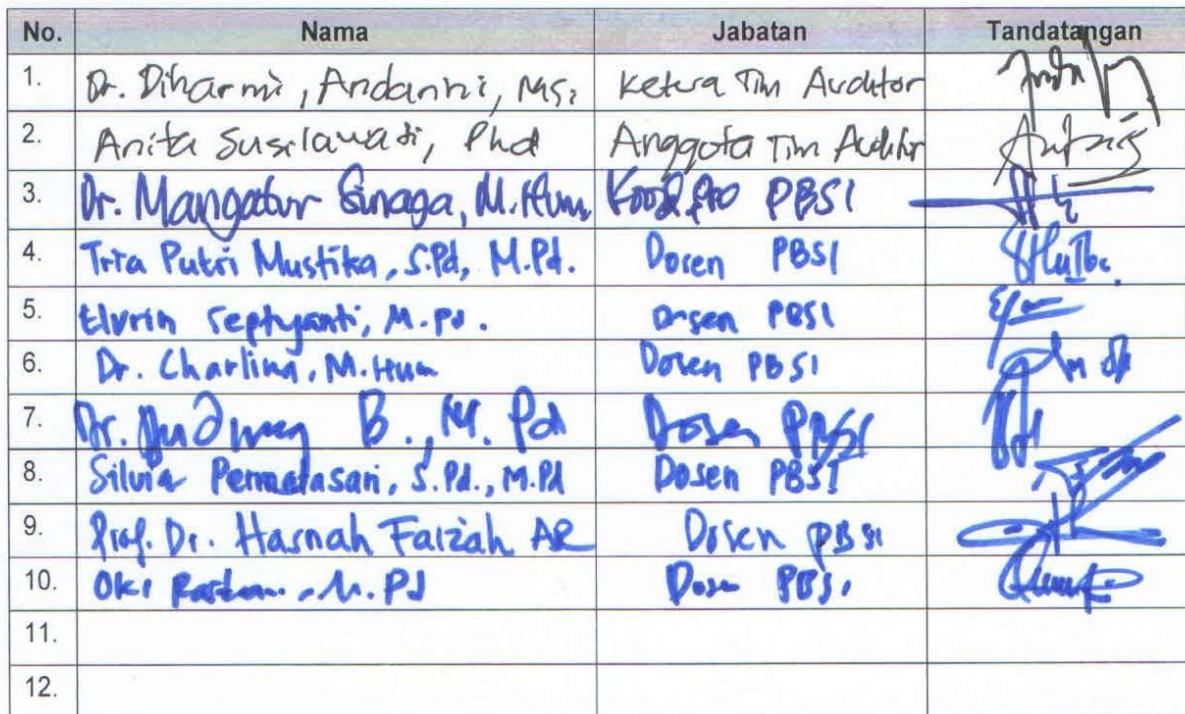 No. Nama Jabatan Tandatangan
1. Dr. Diharmi, Andarini, MSi Ketua Tim Auditor
2. Anita Susilawati, Phd Anggota Tim Auditor
3. Dr. Mangatur Sinaga, M.Hum Koord. PBSI
4. Tria Putri Mustika, S.Pd, M.Pd. Dosen PBSI
5. Elvrin Septyanti, M.Pd. Dosen PBSI
6. Dr. Charlina, M.Hum Dosen PBSI
7. Dr. B., M.Pd Dosen PBSI
8. Silvia Permatasari, S.Pd., M.Pd Dosen PBSI
9. Prof. Dr. Hasnah Faizah AR Dosen PBSI
10. Oki M.Pd Dosen PBSI
11.
12.